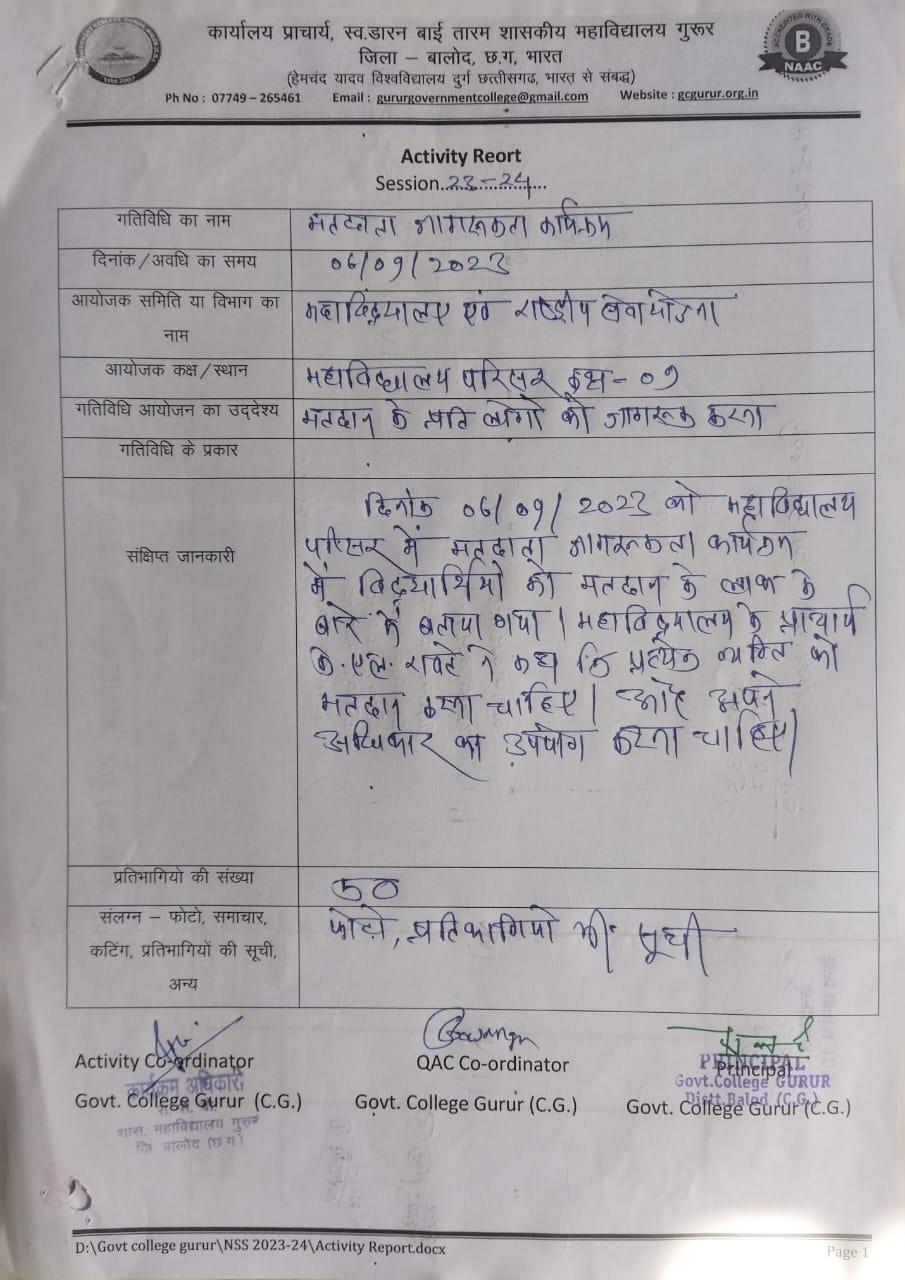 कार्यालय प्राचार्य, स्व.डारन बाई तारम शासकीय महाविद्यालय गुरूर
जिला – बालोद, छ.ग, भारत
(हेमचंद यादव विश्वविद्यालय दुर्ग छत्तीसगढ, भारत से संबद्ध)
Ph No : 07749 – 265461 Email : gururgovernmentcollege@gmail.com Website : gcgurur.org.in
ACCREDITED WITH GRADE
B
NAAC
Activity Reort
Session..23-24...
गतिविधि का नाम मतदाता जागरूकता कार्यक्रम
दिनांक/अवधि का समय 06/09/2023
आयोजक समिति या विभाग का नाम महाविद्यालय एवं राष्ट्रीय सेवा योजना
आयोजक कक्ष/स्थान महाविद्यालय परिसर कक्ष-09
गतिविधि आयोजन का उद्देश्य मतदान के प्रति लोगो को जागरूक करना
गतिविधि के प्रकार
संक्षिप्त जानकारी
दिनांक 06/09/2023 को महाविद्यालय
परिसर में मतदाता जागरूकता कार्यक्रम
में विद्यार्थियो को मतदान के लाभ के
बारे में बताया गया। महाविद्यालय के प्राचार्य
के.एल. रावटे ने कहा कि प्रत्येक व्यक्ति को
मतदान करना चाहिए। और अपने
अधिकार का उपयोग करना चाहिए।
प्रतिभागियो की संख्या 50
संलग्न – फोटो, समाचार,
कटिंग, प्रतिभागियों की सूची,
अन्य
फोटो, प्रतिभागियो की सूची
Activity Co-ordinator QAC Co-ordinator Principal
Govt. College Gurur (C.G.) Govt. College Gurur (C.G.) Govt. College Gurur (C.G.)
कार्यक्रम अधिकारी
शास. महाविद्यालय गुरुर
जि बालोद (छ ग)
PRINCIPAL
Govt.College GURUR
Distt.Balod (C.G.)
D:\Govt college gurur\NSS 2023-24\Activity Report.docx
Page 1